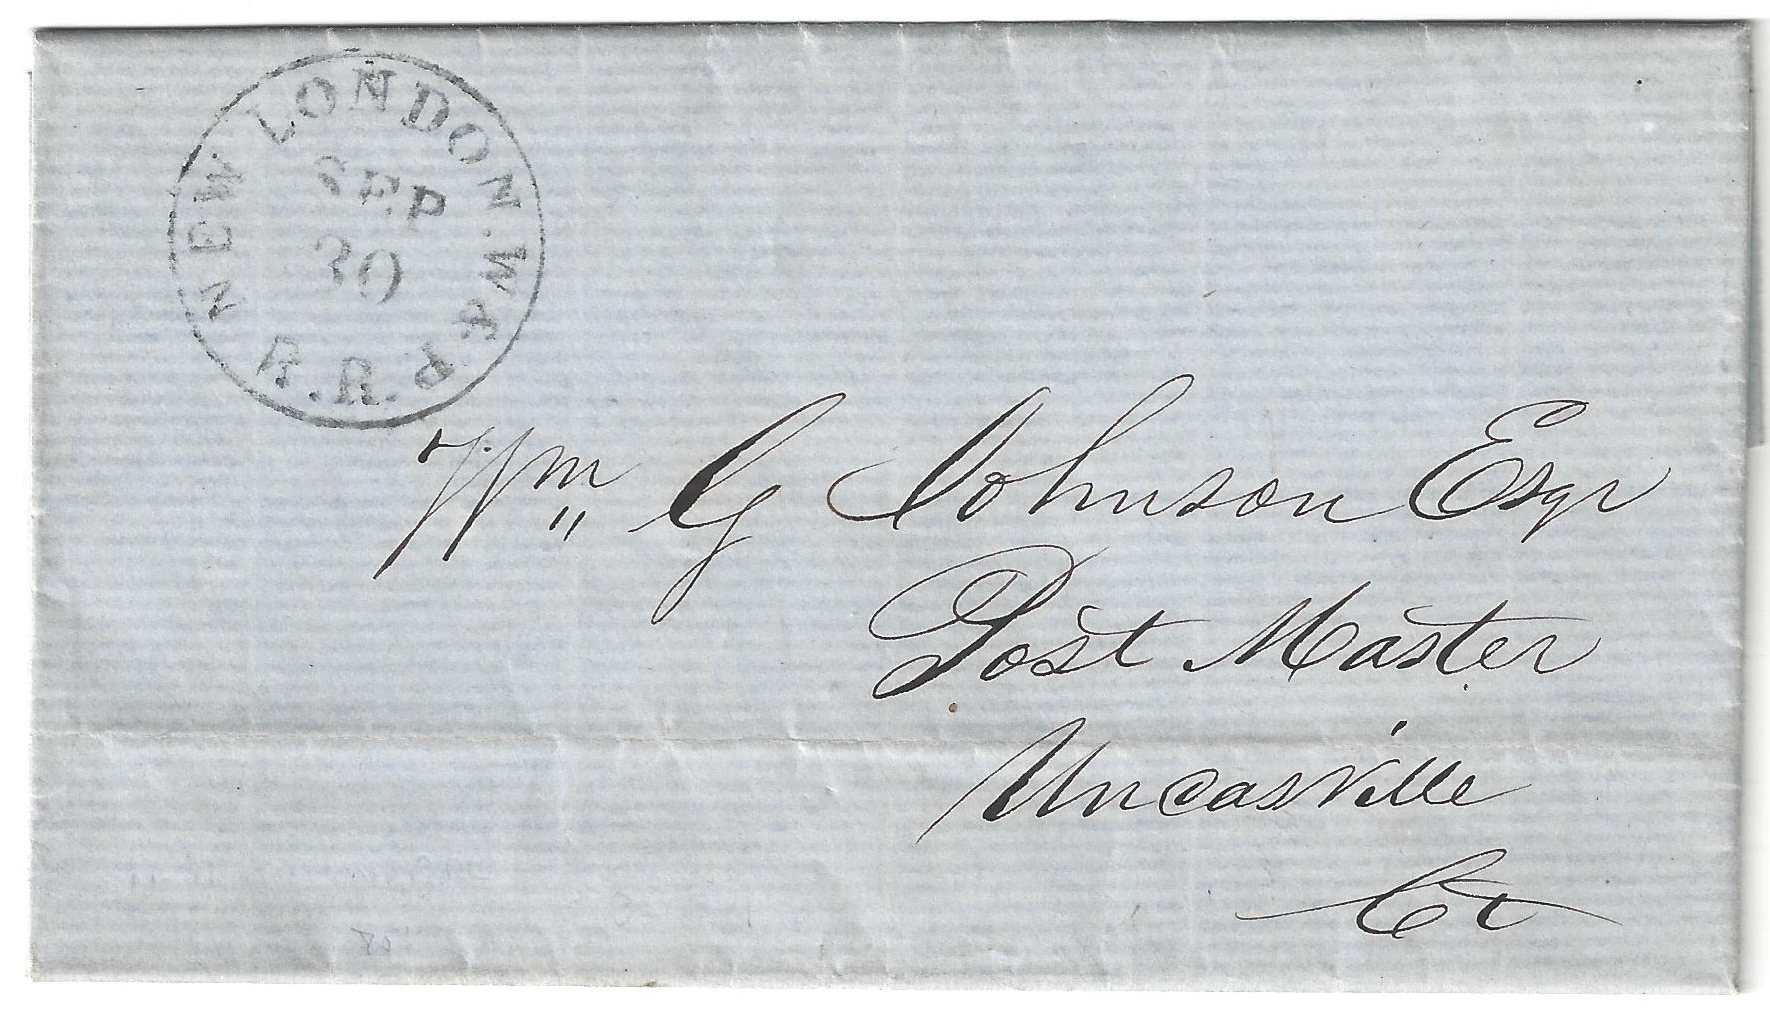 NEW LONDON. W & P. R.R.
SEP
30
Wm G Johnson Esqr
Post Master
Uncasville
Ct